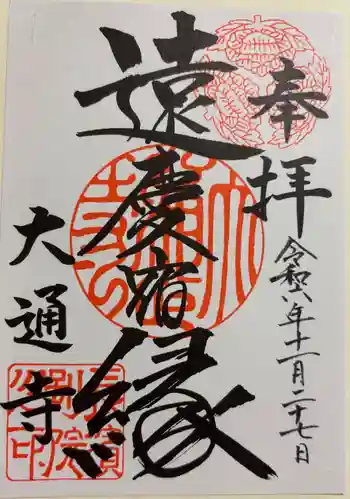 奉拝
令和八年十一月二十七日
遠慶宿縁
大通寺